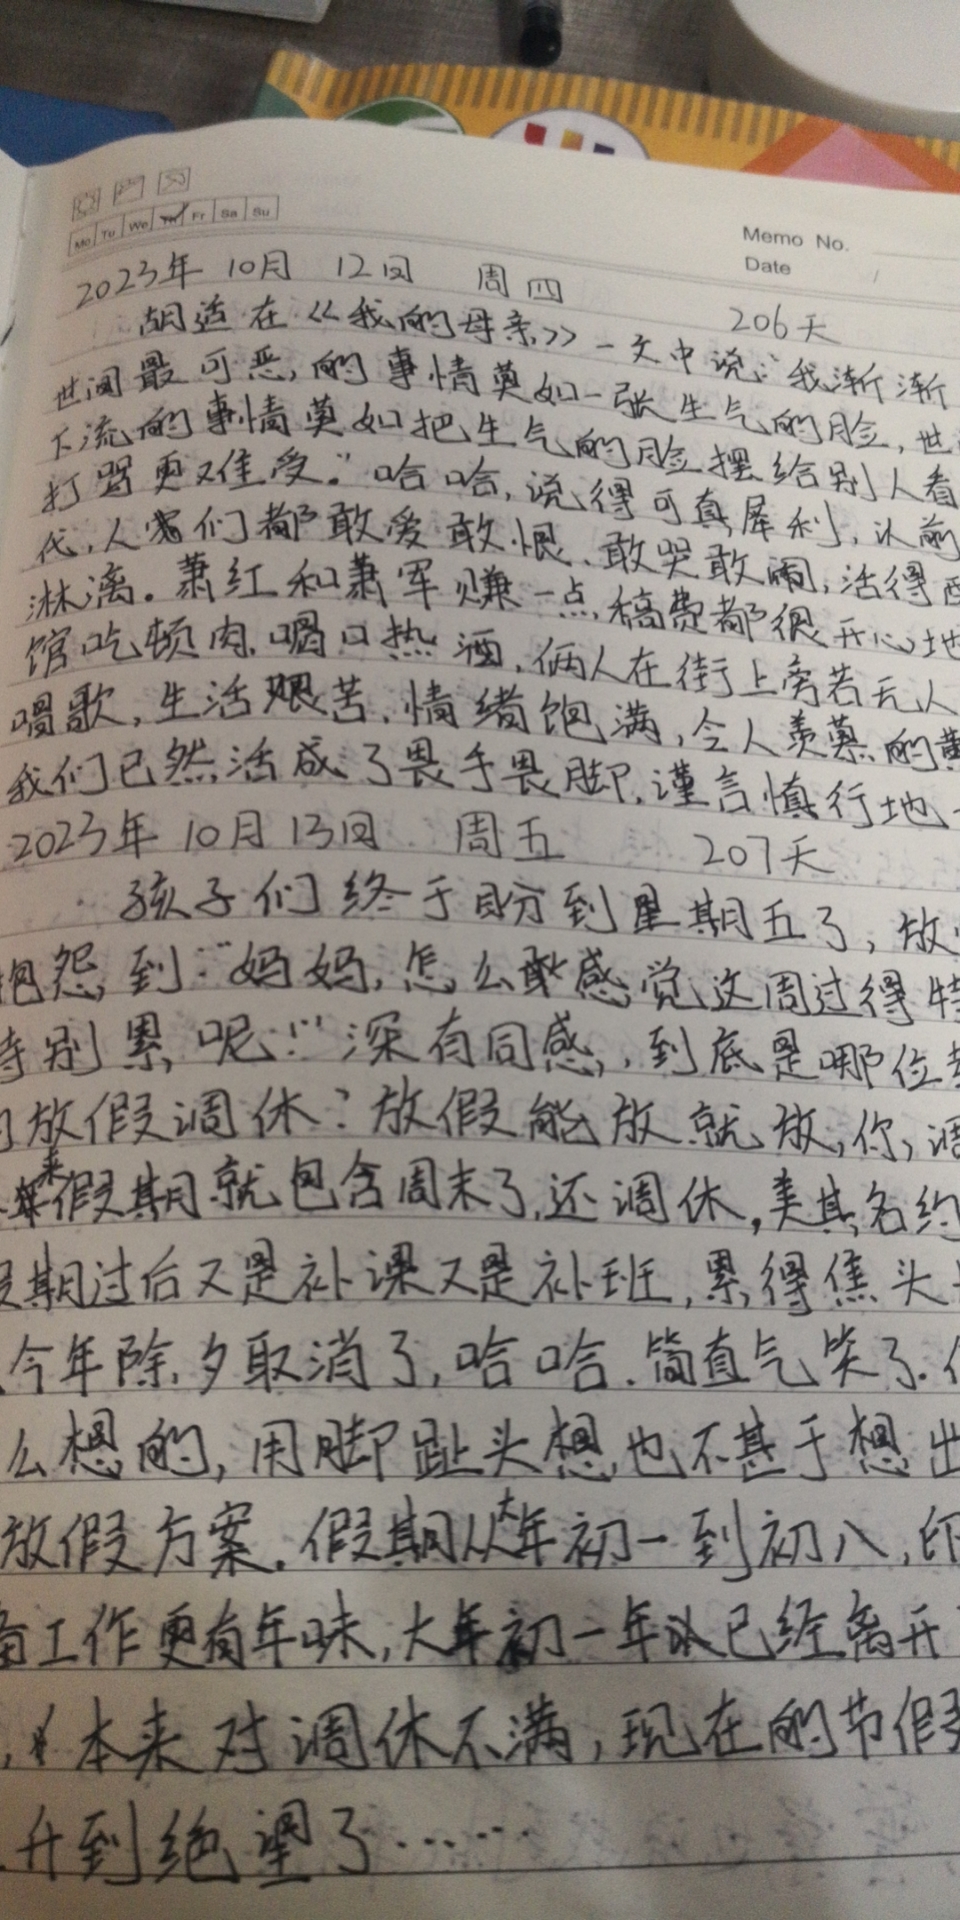 Mo Tu We Th Fr Sa Su
Memo No.
Date /
2023年 10月 12日 周四 206天
胡适在《我的母亲》一文中说:"我渐渐
世间最可恶的事情莫如一张生气的脸,世
下流的事情莫如把生气的脸摆给别人看
打骂更难受。"哈哈,说得可真犀利,以前
代,人们都敢爱敢恨、敢哭敢闹,活得酣
淋漓。萧红和萧军赚一点稿费都很开心地
馆吃顿肉,喝口热酒,俩人在街上旁若无人
唱歌,生活艰苦,情绪饱满,令人羡慕的
我们已然活成了畏手畏脚,谨言慎行地
2023年 10月 13日 周五 207天
孩子们终于盼到星期五了,放
抱怨到:"妈妈,怎么感觉这周过得特
特别累呢!"深有同感,到底是哪位
放假调休?放假能放就放,你调
来假期就包含周末了,还调休,美其名约
假期过后又是补课又是补班,累得焦头
今年除夕取消了,哈哈.简直气笑了.
么想的,用脚趾头想也不甚于想出
放假方案。假期从大年初一到初八,
备工作更有年味,大年初一年味已经离开
本来对调休不满,现在的节假
升到绝望了……